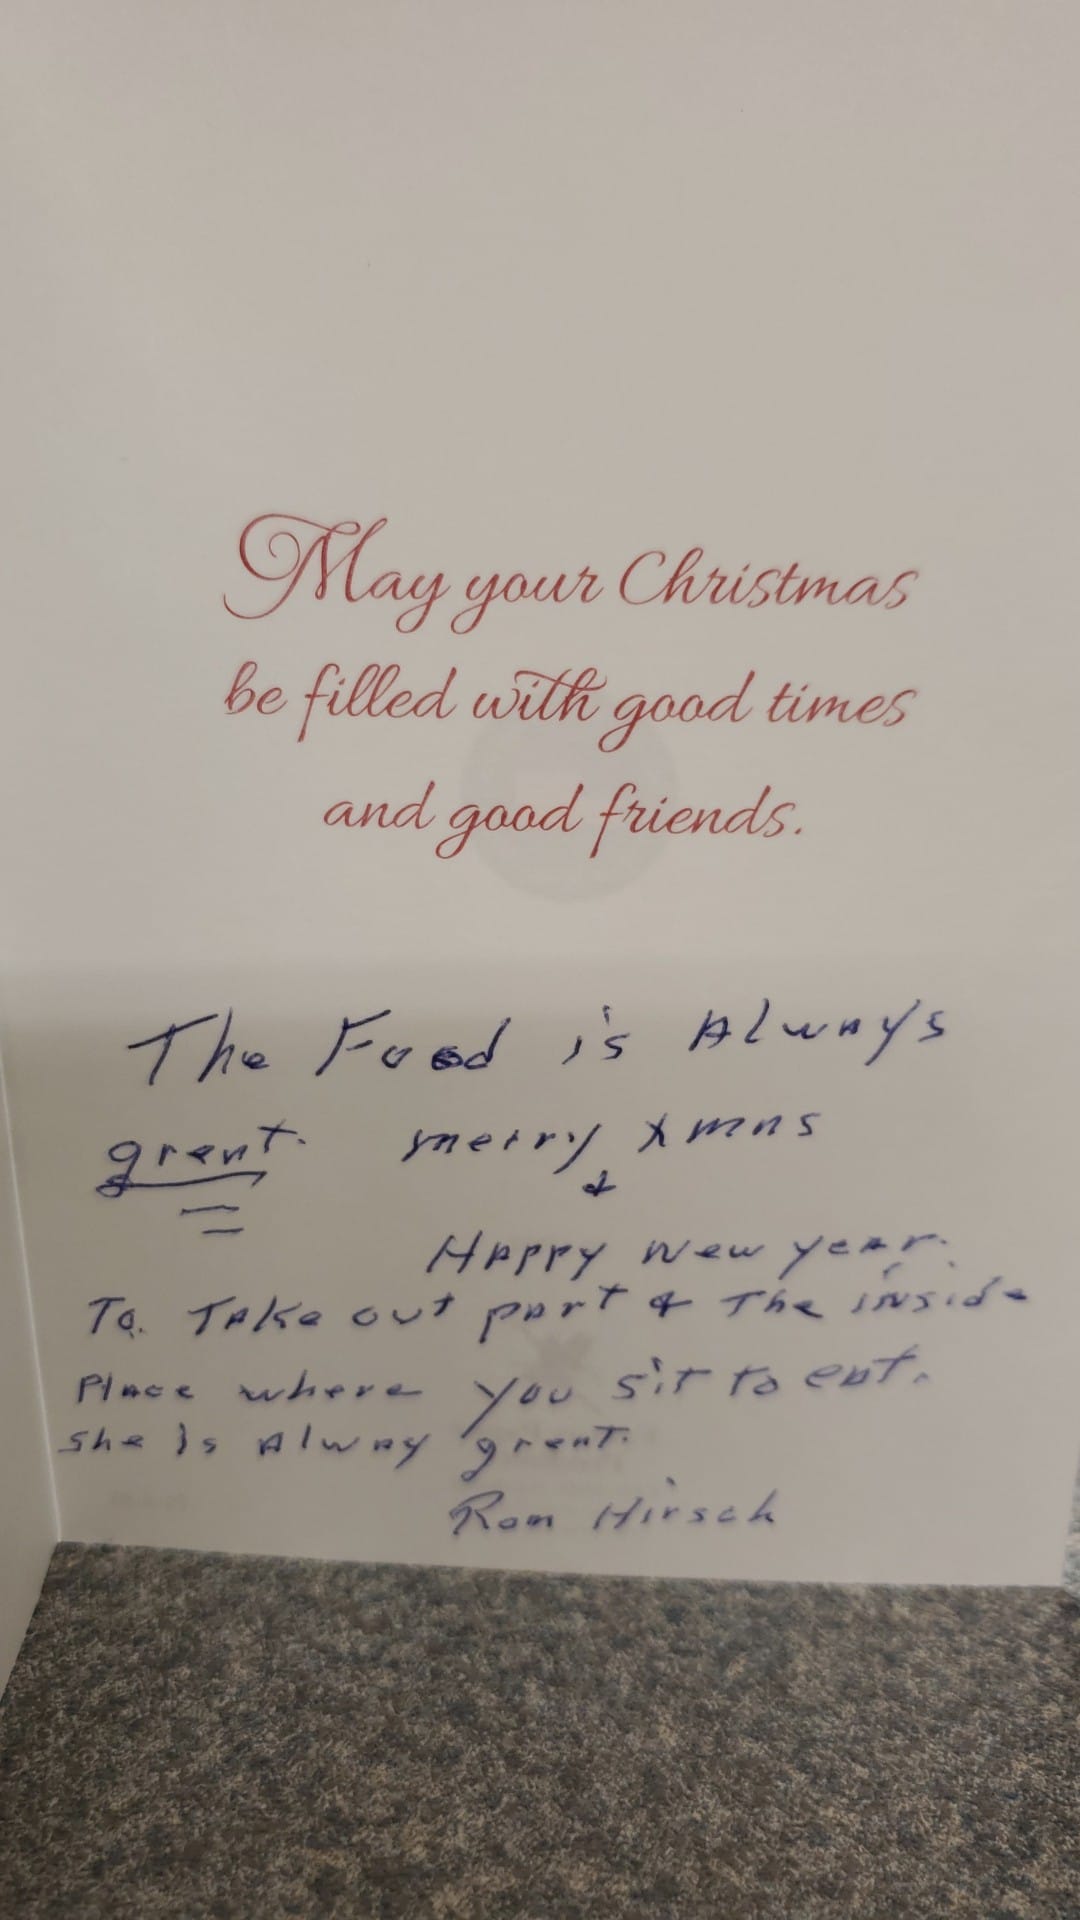 May your Christmas
be filled with good times
and good friends.
The Food is Always
great. merry xmas
&
Happy New year.
To. Take out part & The inside
Place where you sit to eat.
She is Alway great.
Ron Hirsch